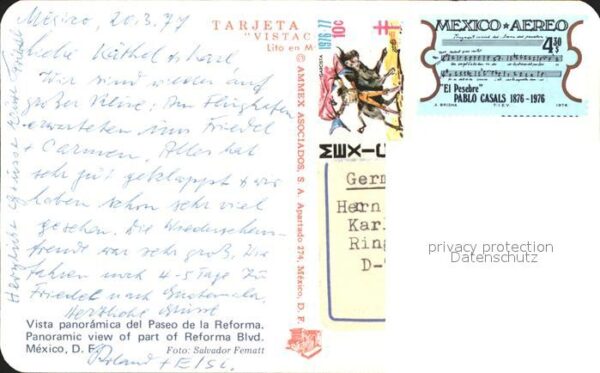 México, 20.3.77
Liebe Käthel + Karl,
Wir sind wieder auf
großer Reise; Am Flughafen
erwarteten uns Friedel
+ Carmen. Alles hat
sehr gut geklappt + wir
haben schon sehr viel
gesehen. Die Wiedersehens-
freude war sehr groß. Wir
fahren noch 4-5 Tage zu
Friedel nach Guatemala.
Herzliche Grüße
Roland + Elsi.
Herzliche Grüsse
Friedel
TARJETA
"VISTAC
Lito en M
© AMMEX ASOCIADOS, S. A. Apartado 274, México, D. F.
Vista panorámica del Paseo de la Reforma.
Panoramic view of part of Reforma Blvd.
México, D. F.
Foto: Salvador Fematt
1976 77
10¢
MEXIC
MEXICO ★ AEREO
4.30
$
"El Pesebre"
PABLO CASALS 1876-1976
T.I.E.V.
1976
Germ
Hern
Karl
Ring
D-
privacy protection
Datenschutz